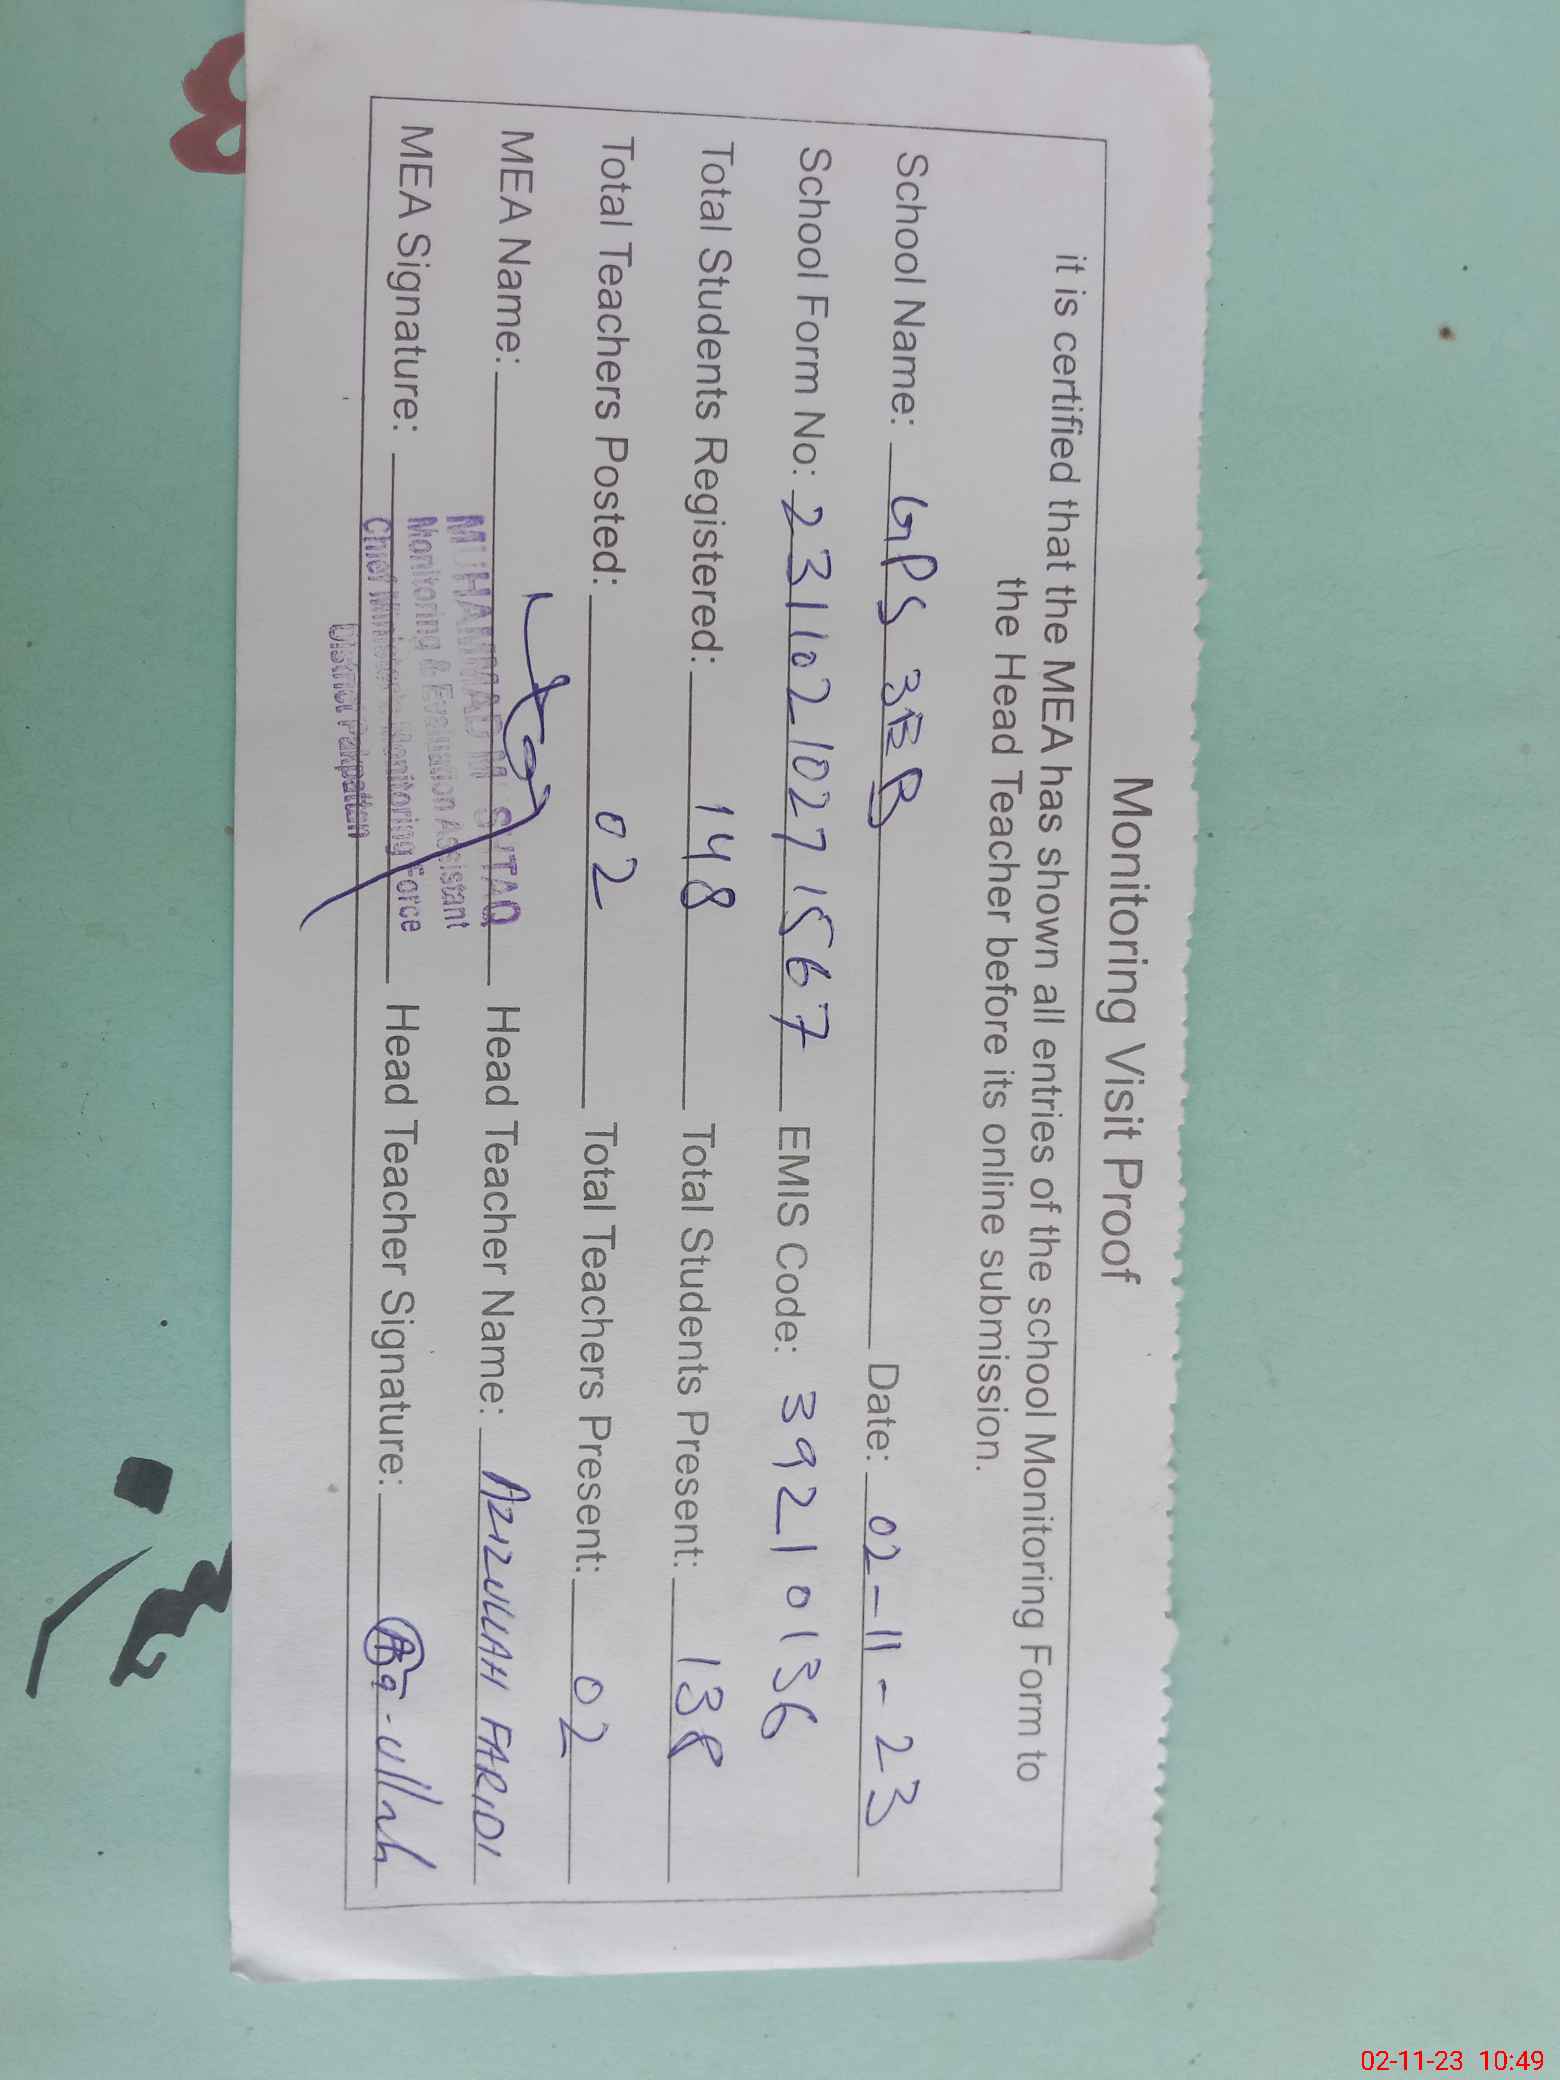 Monitoring Visit Proof
it is certified that the MEA has shown all entries of the school Monitoring Form to
the Head Teacher before its online submission.
School Name: GPS 3EB Date: 02-11-23
School Form No: 23110210271567 EMIS Code: 39210136
Total Students Registered: 148 Total Students Present: 138
Total Teachers Posted: 02 Total Teachers Present: 02
MEA Name: Head Teacher Name: AZIZULLAH FARIDI
MUHAMMAD MUSHTAQ
Monitoring & Evaluation Assistant
Chief Minister's Monitoring Force
District Pakpattan
MEA Signature: Head Teacher Signature:
02-11-23 10:49